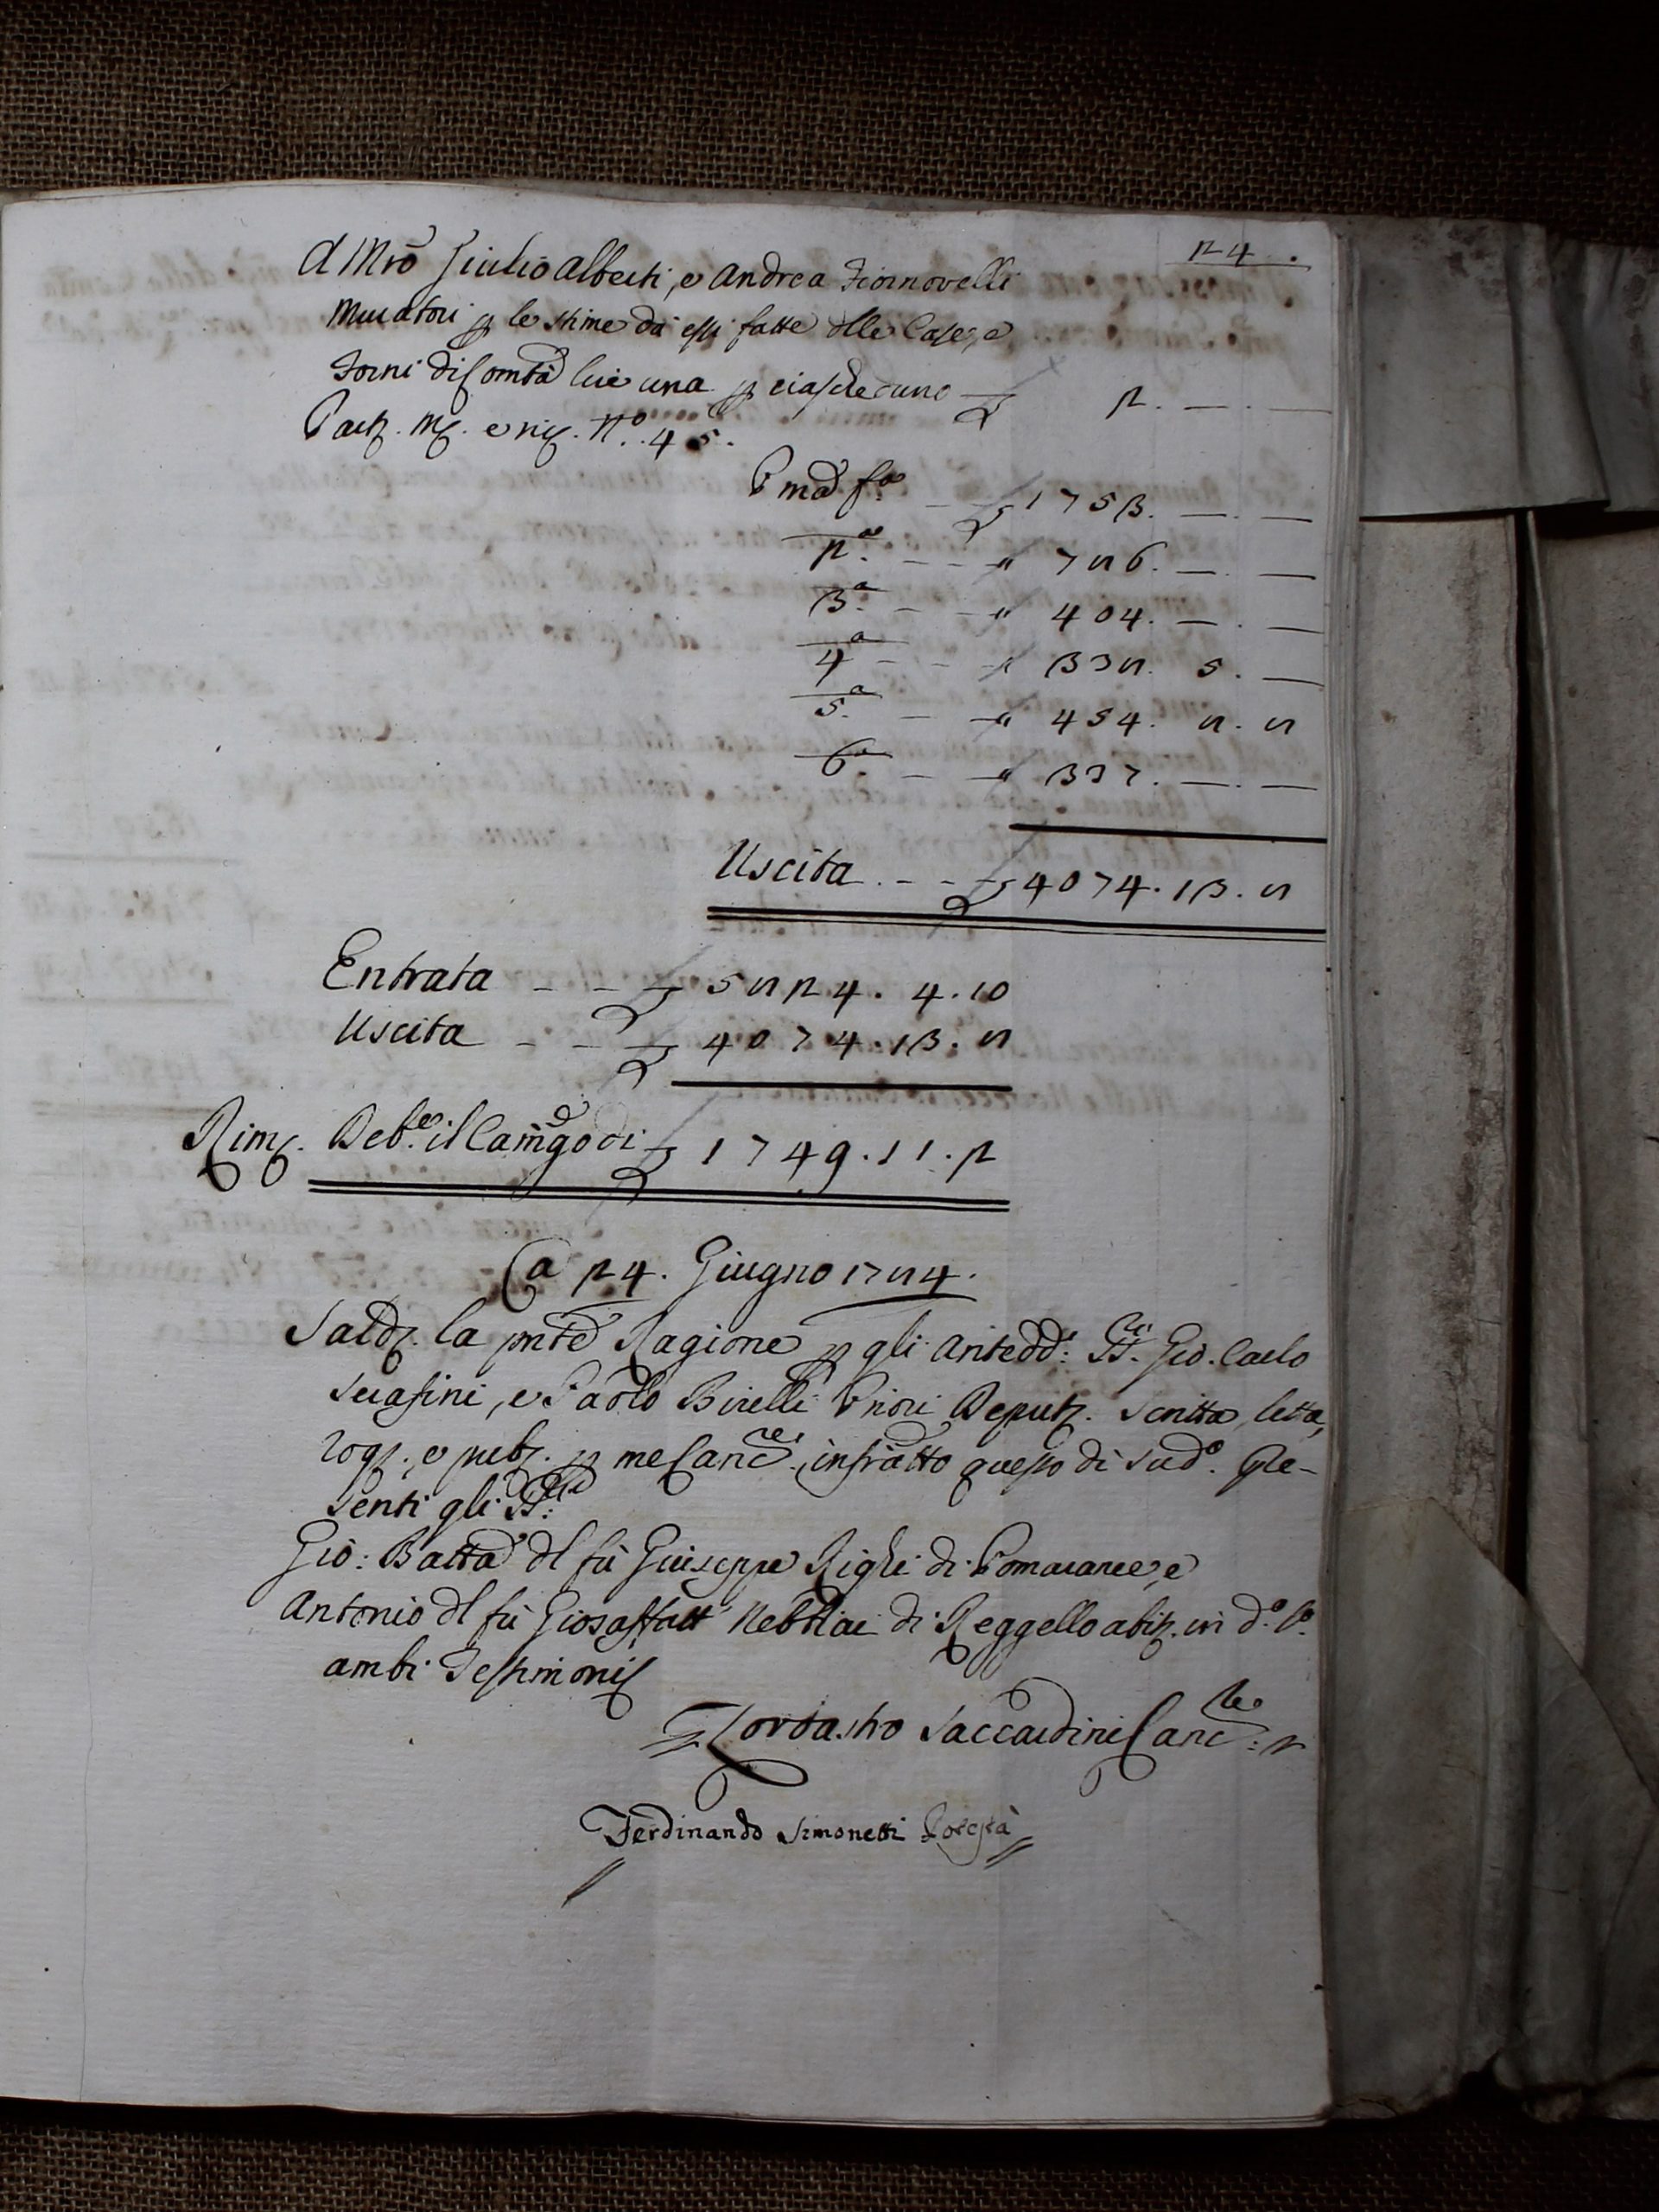 24.
A Mrõ Giulio Alberti, e Andrea Fiornovelli
Muratori p le stime da essi fatte dlle Case, e
Forni di Comtà lire una p ciascheduno £ 2. —. —
Part. Mꝭ. e riꝭ. N.º 45.
Pma fª - £ 1753. —. —
2.ª - - " 786. —. —
3.ª - - " 404. —. —
4ª - - " 338. 5. —
5.ª - - " 454. 8. 8
6ª - - " 337. —. —
Uscita - - £ 4074. 13. 8
Entrata - - £ 5824. 4. 10
Uscita - - £ 4074. 13. 8
Rimꝭ. Deb.re il Camgo di £ 1749. 11. 2
A 24. Giugno 1784.
Saldꝭ. la pnte Ragione p gli antedd: SS.ri Gio. Carlo
Serafini, e Paolo Birelli Priori Deputꝭ. Scritta, letta,
rogꝭ., e pubꝭ. p me Canc.re infratto questo dì sud.º Pre-
senti gli SS.ri
Giõ: Batta dl fù Giuseppe Righi di Pomarance, e
Antonio dl fù Giosaffatt Nebbiai di Reggello abitꝭ. in d.º l.º
ambi Testimonij
Saccardini Canc.re
Ferdinando Simonetti Potestà